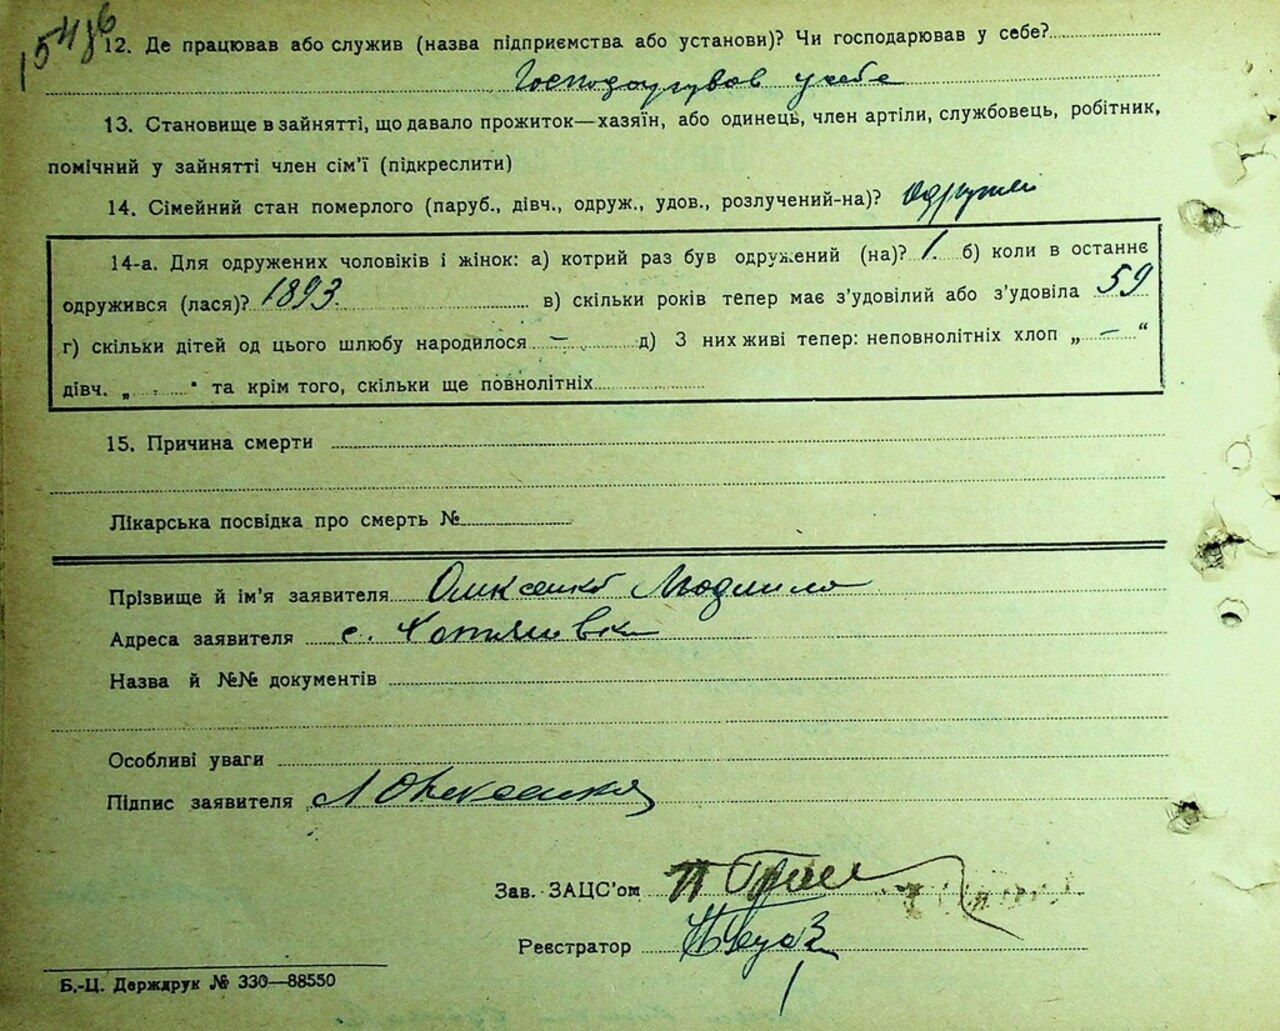 12. Де працював або служив (назва підприємства або установи)? Чи господарював у себе?
Господарував у себе
13. Становище в зайнятті, що давало прожиток—хазяїн, або одинець, член артіли, службовець, робітник,
помічний у зайнятті член сім'ї (підкреслити)
14. Сімейний стан померлого (паруб., дівч., одруж., удов., розлучений-на)?
14-а. Для одружених чоловіків і жінок: а) котрий раз був одружений (на)? 1. б) коли в останнє
одружився (лася)? 1893. в) скільки років тепер має з'удовілий або з'удовіла 59
г) скільки дітей од цього шлюбу народилося — д) З них живі тепер: неповнолітніх хлоп „ — “
дівч. „ “ та крім того, скільки ще повнолітніх
15. Причина смерти
Лікарська посвідка про смерть №
Прізвище й ім'я заявителя Людмила
Адреса заявителя с.
Назва й №№ документів
Особливі уваги
Підпис заявителя
Зав. ЗАЦС'ом
Реєстратор
Б.-Ц. Держдрук № 330—88550